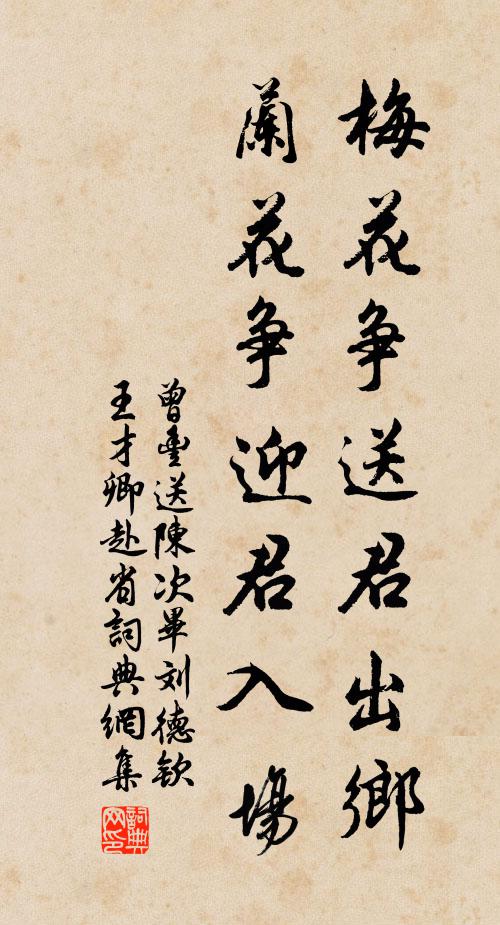 梅花争送君出鄉
蘭花争迎君入場
曾豐送陳次畢刘德欽
王才卿赴省詞典網集
詞典
网印